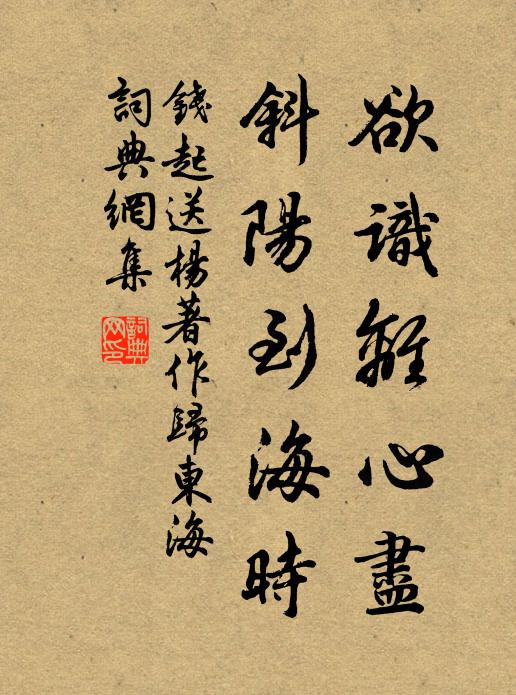 欲識離心盡
斜陽到海時
錢起送楊著作歸東海
詞典網集
詞典網印